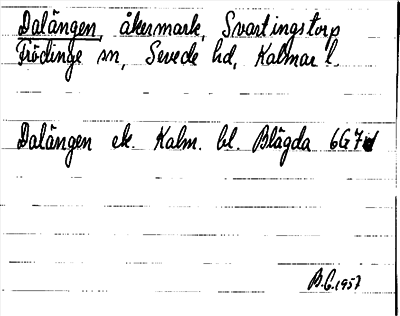 Dalängen, åkermark, Svartingstorp
Frödinge sn, Sevede hd, Kalmar l.
Dalängen ek. Kalm. bl. Blägda 6G7d
B.G. 1957